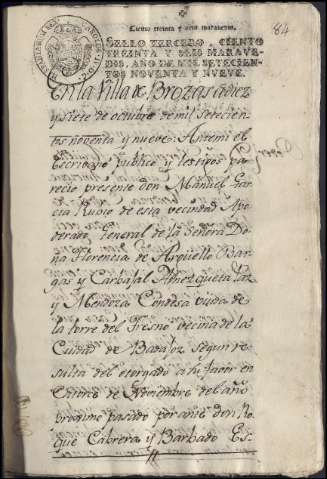 Ciento treinta y seis maravedis.
84
SELLO TERCERO, CIENTO
TREINTA Y SEIS MARAVE-
DIS, AÑO DE MIL SETECIEN-
TOS NOVENTA Y NUEVE.
En la Villa de Brozas a diez
y siete de octubre de mil setecien-
tos noventa y nueve: Antemi el
Escribano publico y testigos pa-
recio presente don Manuel Gar-
cia Rubio de esta vecindad Apo-
derado General de la Señora Do-
ña Florencia de Arguello Bar-
gas y Carbajal
y Mendoza Condesa viuda de
la torre del Fresno vecina de la
Ciudad de Badajoz segun re-
sulta del otorgado a su favor en
de Noviembre del año
proximo pasado por ante don Ro-
que Cabrera y Barbado Es-